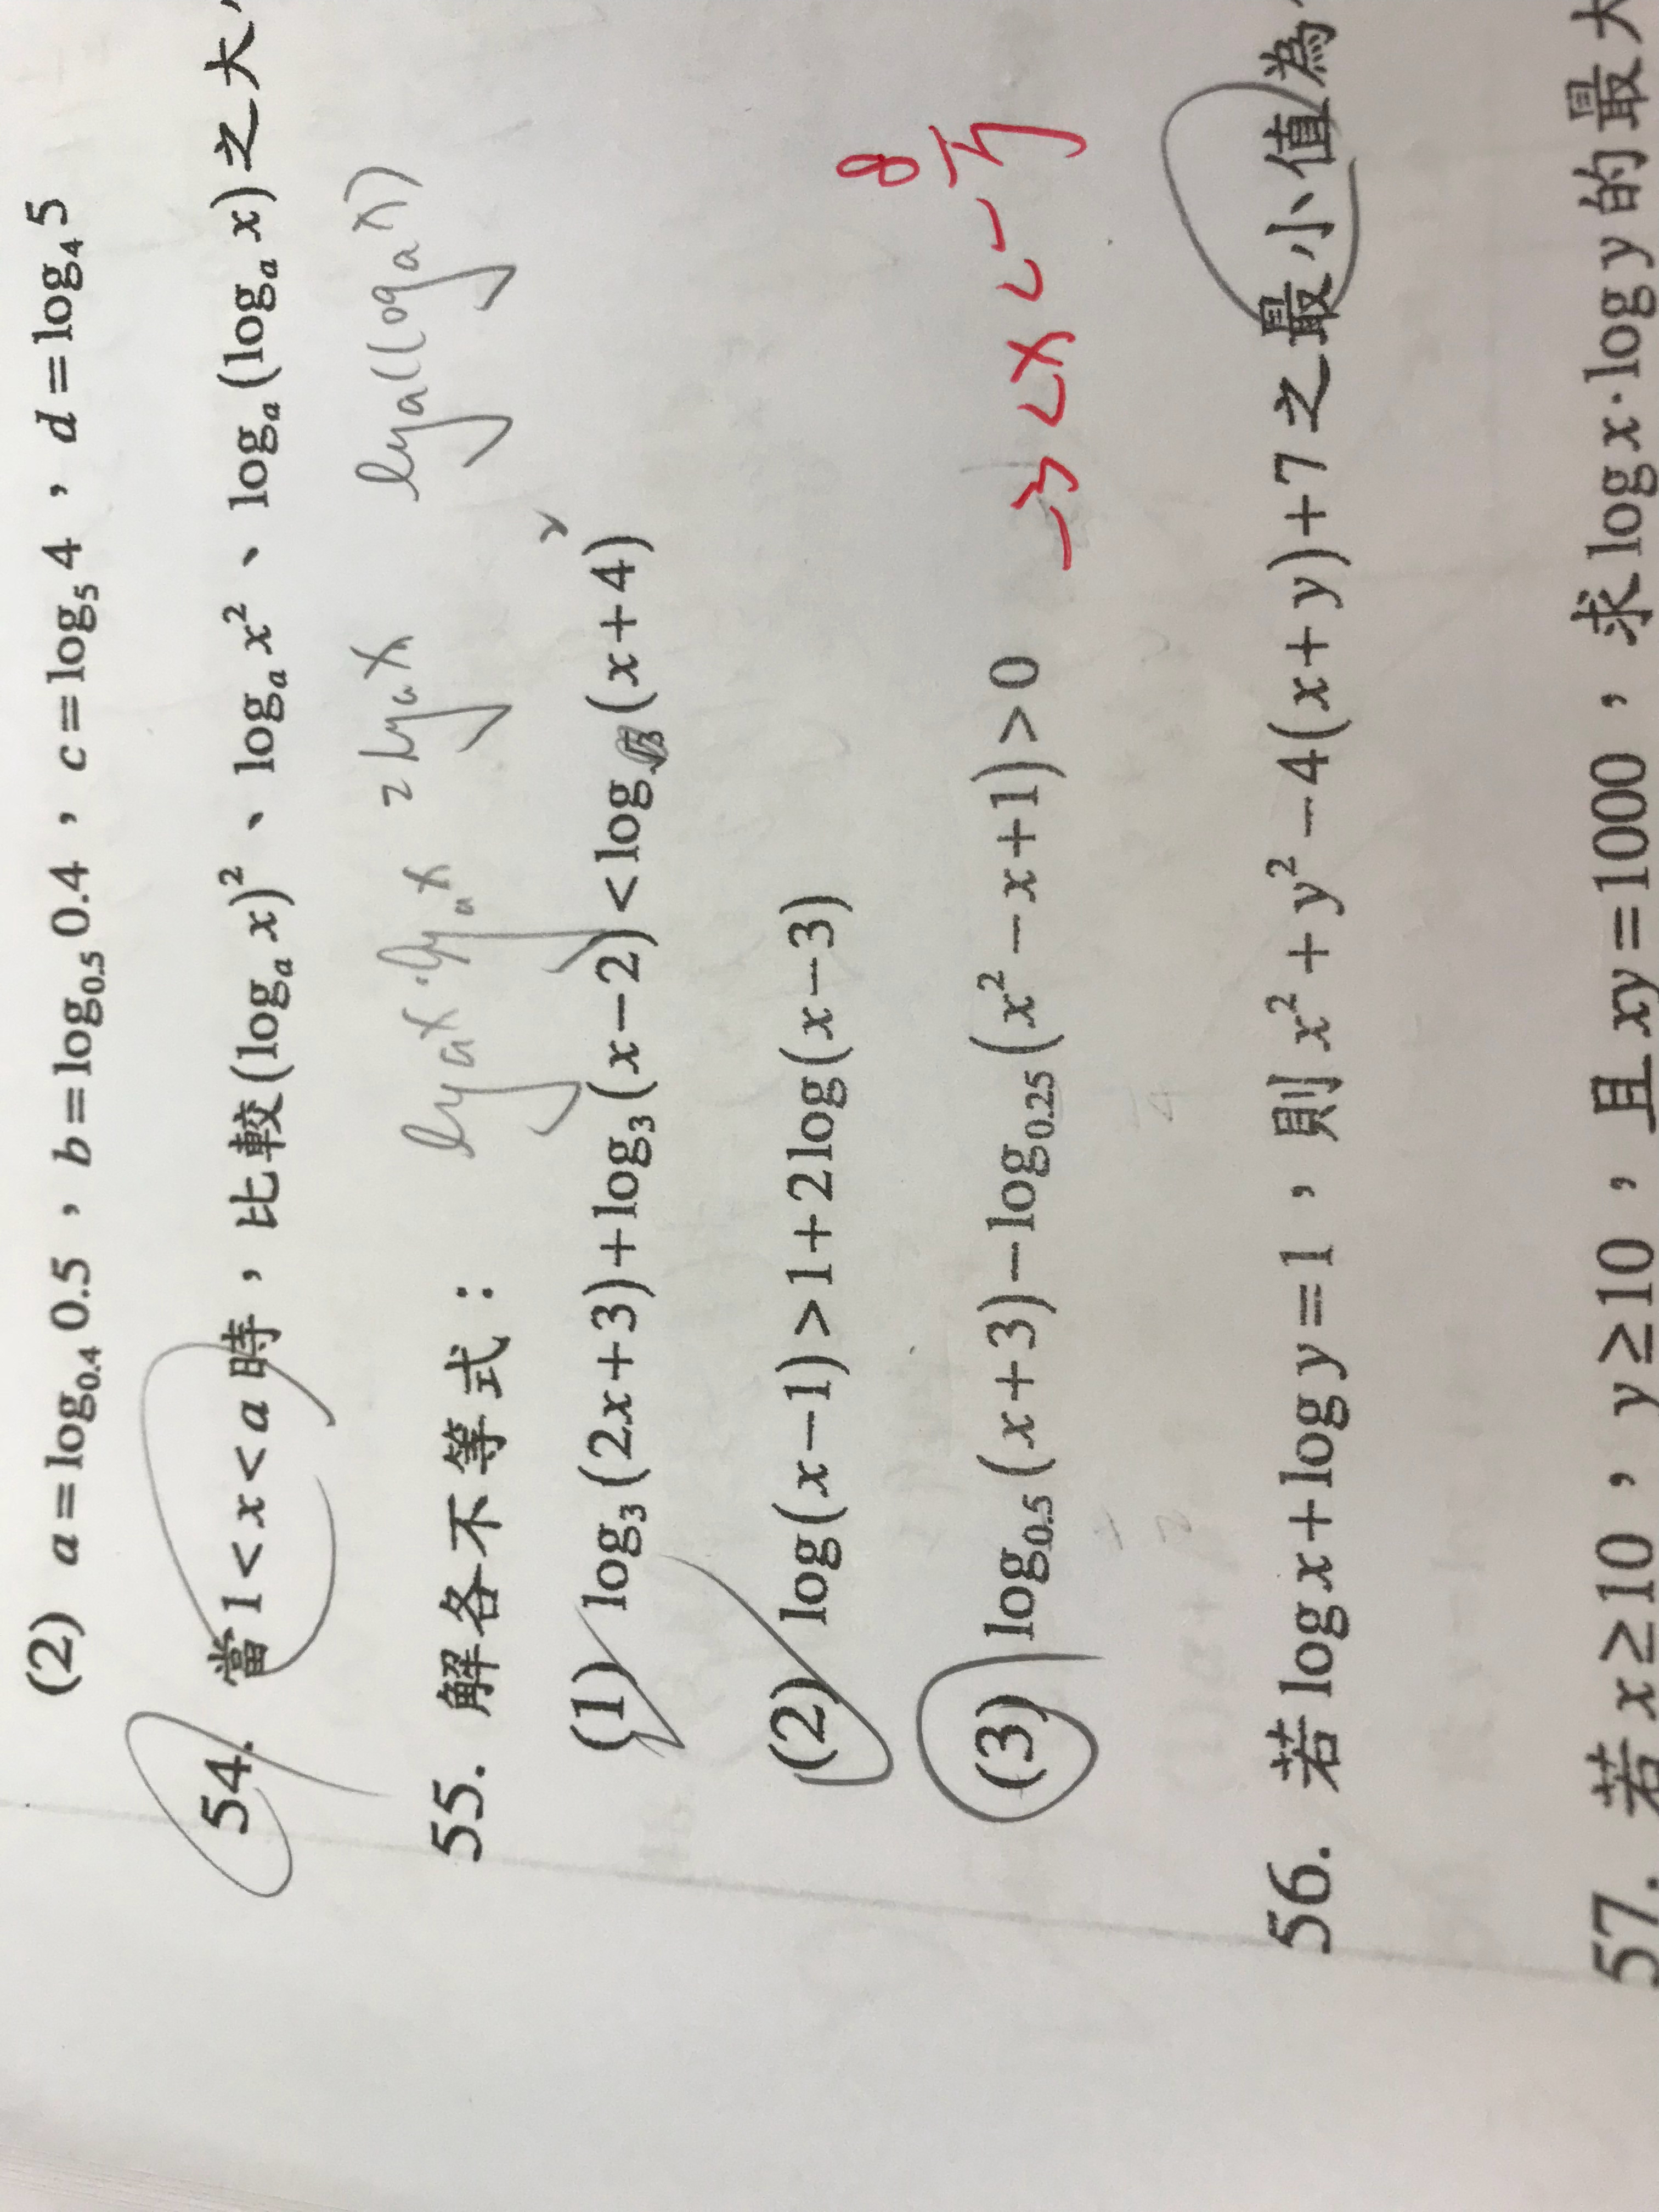 (2) a=log₀.₄0.5,b=log₀.₅0.4,c=log₅4,d=log₄5
54. 當1<x<a時,比較(logₐx)²、logₐx²、logₐ(logₐx)之大
logₐx·logₐx 2logₐx logₐ(logₐx)
55. 解各不等式:
(1) log₃(2x+3)+log₃(x-2)<log√3(x+4)
(2) log(x-1)>1+2log(x-3)
(3) log₀.₅(x+3)-log₀.₂₅(x²-x+1)>0 -3<x<-8/7
56. 若logx+logy=1,則x²+y²-4(x+y)+7之最小值為
57. 若x≥10,y≥10,且xy=1000,求logx·logy的最大